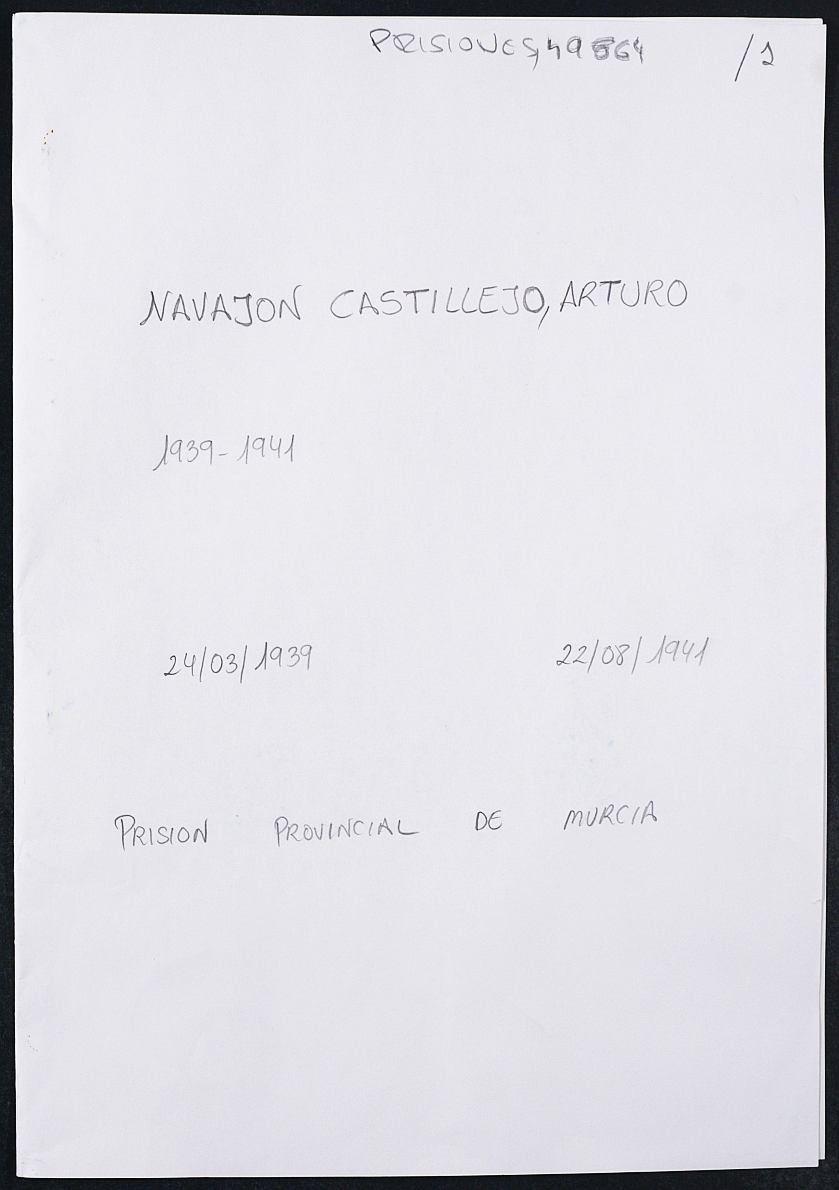 PRISIONES, 49564 /1
NAVAJON CASTILLEJO, ARTURO
1939-1941
24/03/1939 22/08/1941
PRISION PROVINCIAL DE MURCIA